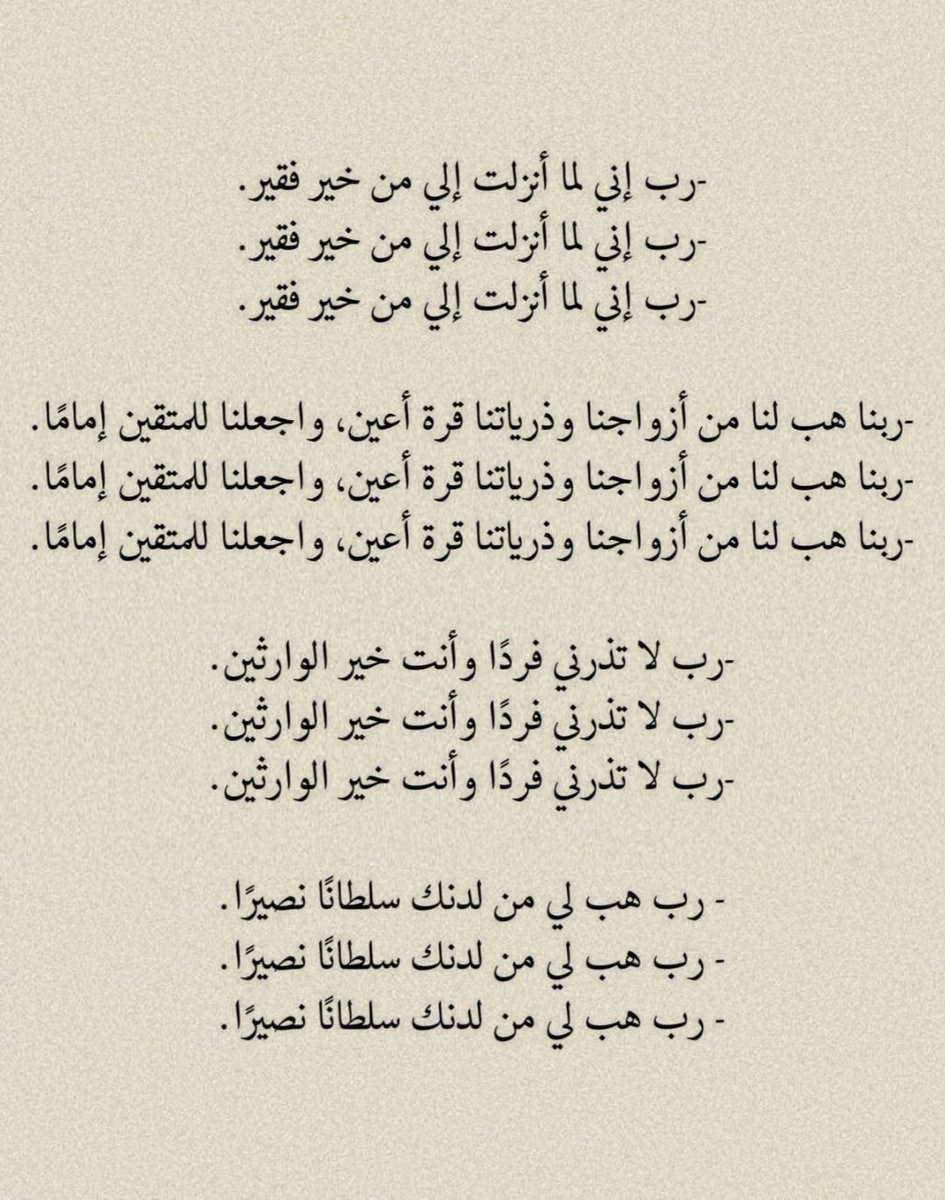 -رب إني لما أنزلت إلي من خير فقير.
-رب إني لما أنزلت إلي من خير فقير.
-رب إني لما أنزلت إلي من خير فقير.
-ربنا هب لنا من أزواجنا وذرياتنا قرة أعين، واجعلنا للمتقين إمامًا.
-ربنا هب لنا من أزواجنا وذرياتنا قرة أعين، واجعلنا للمتقين إمامًا.
-ربنا هب لنا من أزواجنا وذرياتنا قرة أعين، واجعلنا للمتقين إمامًا.
-رب لا تذرني فردًا وأنت خير الوارثين.
-رب لا تذرني فردًا وأنت خير الوارثين.
-رب لا تذرني فردًا وأنت خير الوارثين.
- رب هب لي من لدنك سلطانًا نصيرًا.
- رب هب لي من لدنك سلطانًا نصيرًا.
- رب هب لي من لدنك سلطانًا نصيرًا.